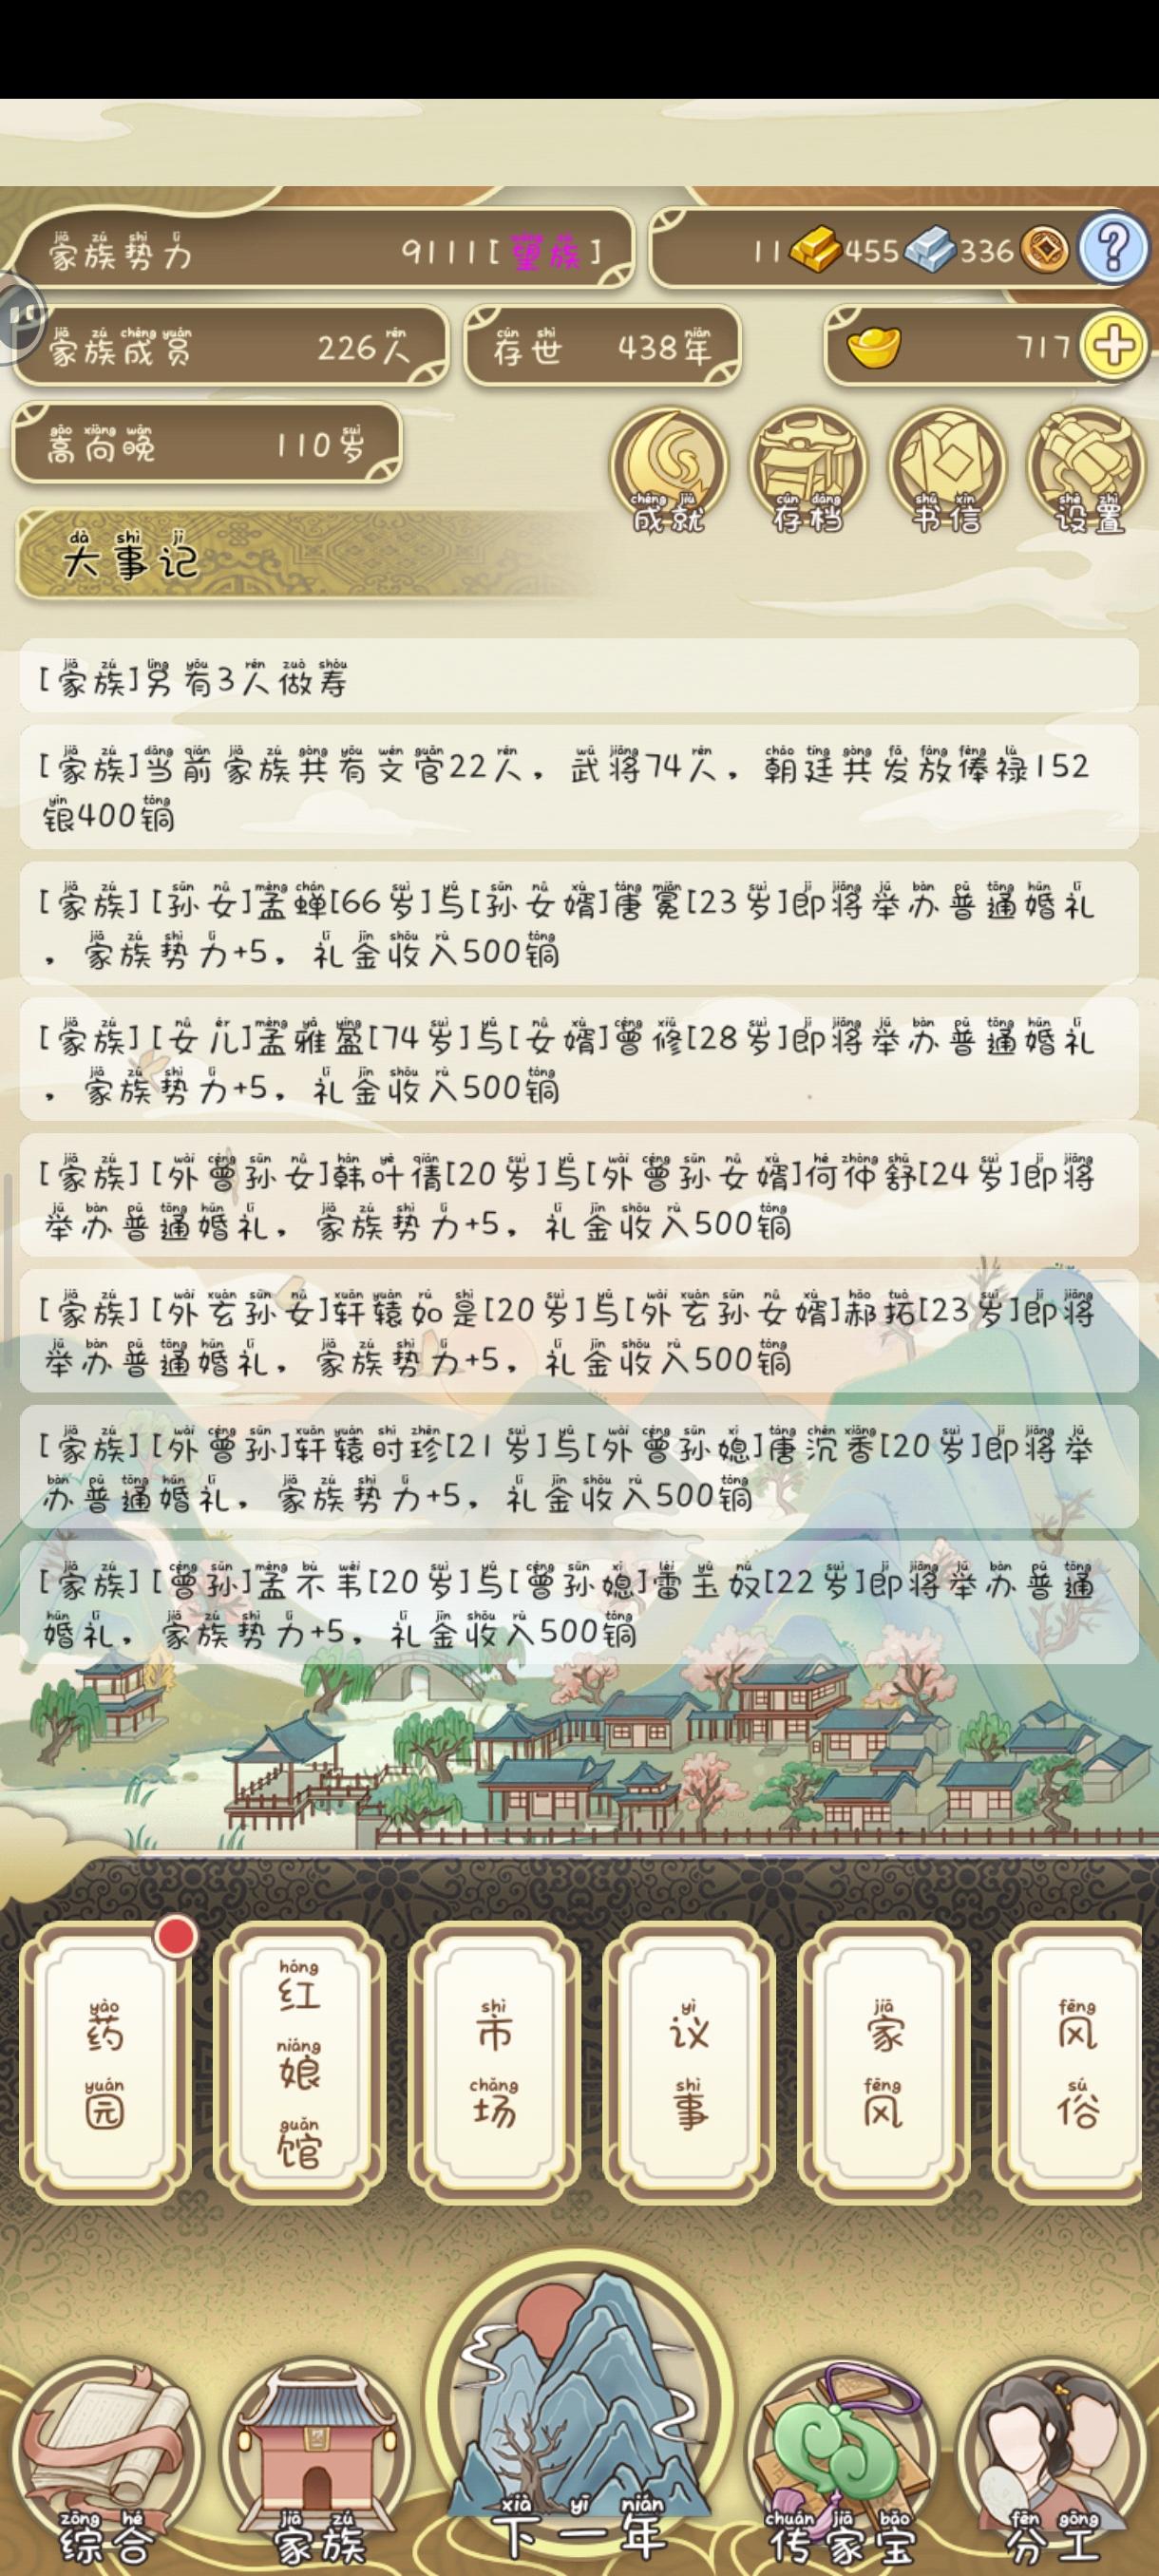 家族势力 9111[望族]
11 455 336 ?
家族成员 226人 存世 438年 717 +
高向晚 110岁
成就 存档 书信 设置
大事记
[家族]另有3人做寿
[家族]当前家族共有文官22人，武将74人，朝廷共发放俸禄152
银400铜
[家族][孙女]孟蝉[66岁]与[孙女婿]唐冕[23岁]即将举办普通婚礼
，家族势力+5，礼金收入500铜
[家族][女儿]孟雅盈[74岁]与[女婿]曾修[28岁]即将举办普通婚礼
，家族势力+5，礼金收入500铜
[家族][外曾孙女]韩叶倩[20岁]与[外曾孙女婿]何仲舒[24岁]即将
举办普通婚礼，家族势力+5，礼金收入500铜
[家族][外玄孙女]轩辕如是[20岁]与[外玄孙女婿]郝拓[23岁]即将
举办普通婚礼，家族势力+5，礼金收入500铜
[家族][外曾孙]轩辕时珍[21岁]与[外曾孙媳]唐沉香[20岁]即将举
办普通婚礼，家族势力+5，礼金收入500铜
[家族][曾孙]孟不韦[20岁]与[曾孙媳]雷玉奴[22岁]即将举办普通
婚礼，家族势力+5，礼金收入500铜
药园 红娘馆 市场 议事 家风 风俗
综合 家族 下一年 传家宝 分工